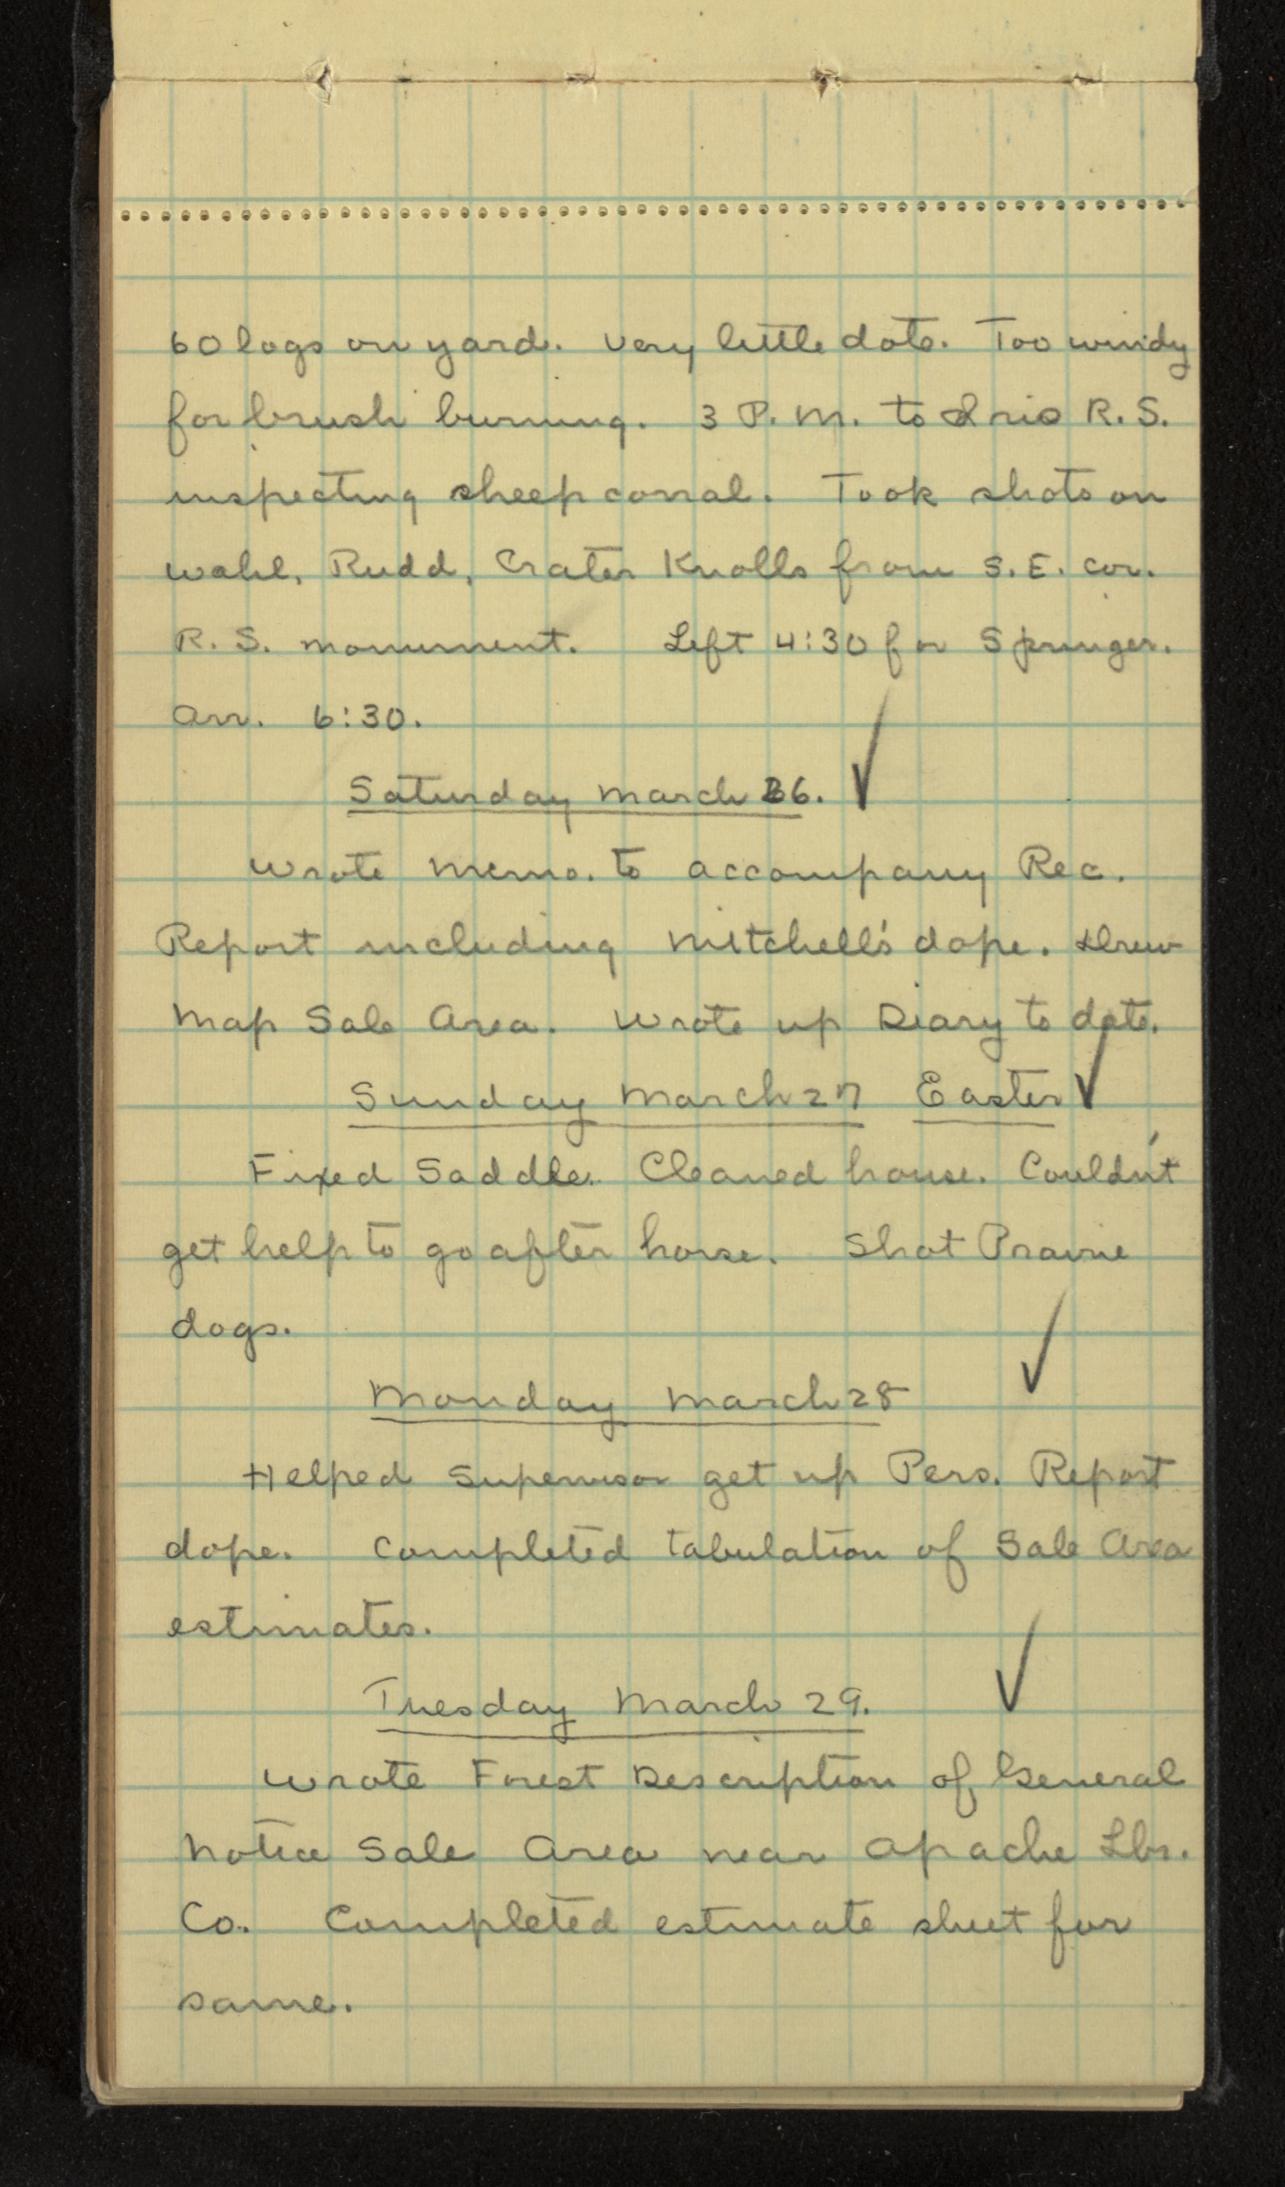 60 logs on yard. Very little dote. Too windy
for brush burning. 3 P.M. to Iris R.S.
inspecting sheep corral. Took shots on
Wahl, Rudd, Crater Knolls from S.E. cor.
R.S. monument. Left 4:30 for Springer.
Arr. 6:30.
Saturday March 26.
Wrote memo. to accompany Rec.
Report including Mitchell's dope. Drew
Map Sale Area. Wrote up Diary to date.
Sunday March 27 Easter
Fixed Saddle. Cleaned house. Couldn't
get help to go after horse. Shot Prairie
dogs.
Monday March 28
Helped Supervisor get up Pers. Report
dope. Completed tabulation of Sale Area
estimates.
Tuesday March 29.
Wrote Forest Description of General
Notice Sale Area near Apache Lbr.
Co. Completed estimate sheet for
same.